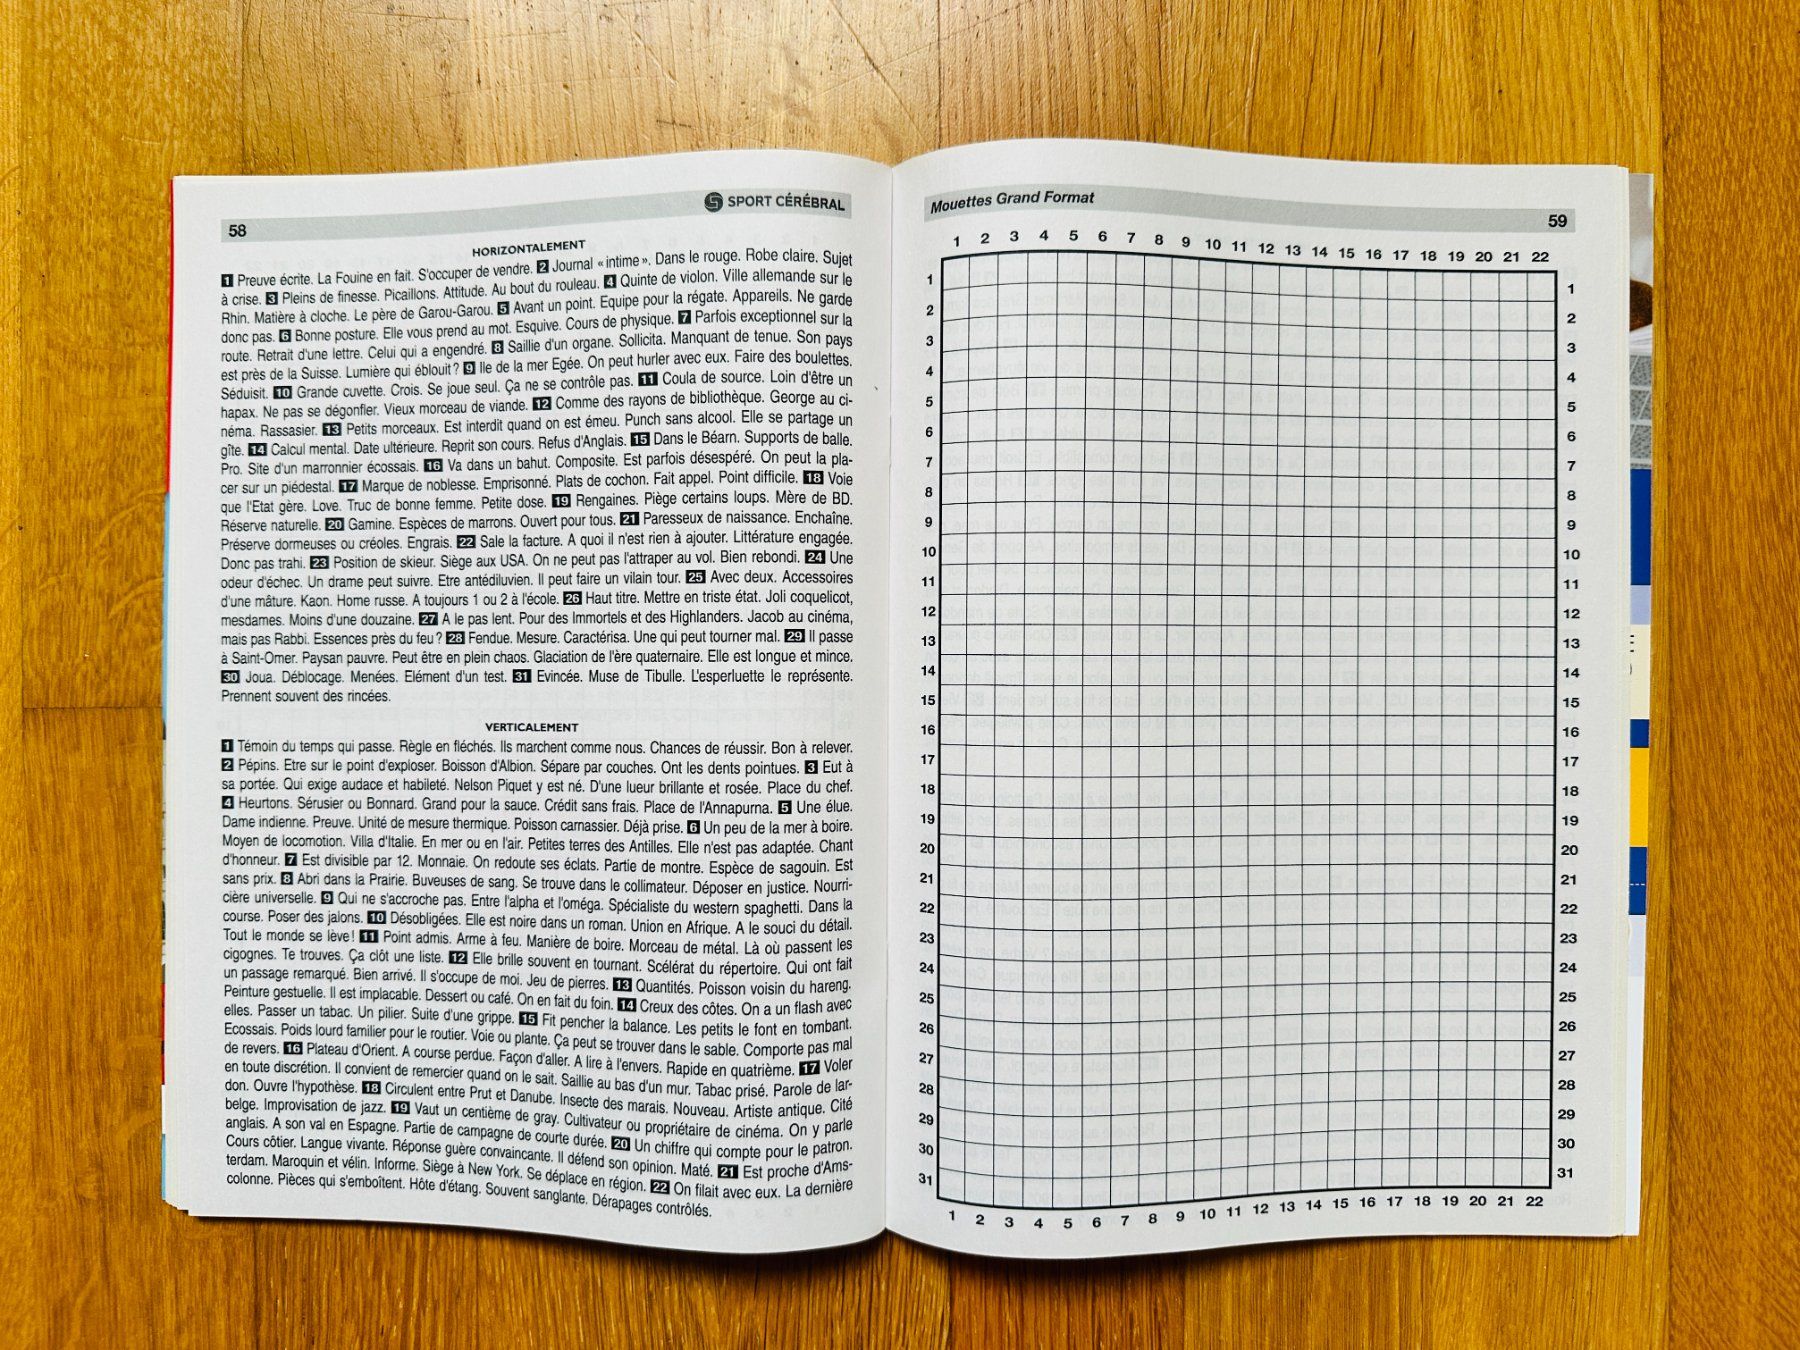 58
SPORT CÉRÉBRAL
HORIZONTALEMENT
1 Preuve écrite. La Fouine en fait. S'occuper de vendre. 2 Journal «intime». Dans le rouge. Robe claire. Sujet
à crise. 3 Pleins de finesse. Picaillons. Attitude. Au bout du rouleau. 4 Quinte de violon. Ville allemande sur le
Rhin. Matière à cloche. Le père de Garou-Garou. 5 Avant un point. Equipe pour la régate. Appareils. Ne garde
donc pas. 6 Bonne posture. Elle vous prend au mot. Esquive. Cours de physique. 7 Parfois exceptionnel sur la
route. Retrait d'une lettre. Celui qui a engendré. 8 Saillie d'un organe. Sollicita. Manquant de tenue. Son pays
est près de la Suisse. Lumière qui éblouit? 9 Ile de la mer Egée. On peut hurler avec eux. Faire des boulettes.
Séduisit. 10 Grande cuvette. Crois. Se joue seul. Ça ne se contrôle pas. 11 Coula de source. Loin d'être un
hapax. Ne pas se dégonfler. Vieux morceau de viande. 12 Comme des rayons de bibliothèque. George au ci-
néma. Rassasier. 13 Petits morceaux. Est interdit quand on est émeu. Punch sans alcool. Elle se partage un
gîte. 14 Calcul mental. Date ultérieure. Reprit son cours. Refus d'Anglais. 15 Dans le Béarn. Supports de balle.
Pro. Site d'un marronnier écossais. 16 Va dans un bahut. Composite. Est parfois désespéré. On peut la pla-
cer sur un piédestal. 17 Marque de noblesse. Emprisonné. Plats de cochon. Fait appel. Point difficile. 18 Voie
que l'Etat gère. Love. Truc de bonne femme. Petite dose. 19 Rengaines. Piège certains loups. Mère de BD.
Réserve naturelle. 20 Gamine. Espèces de marrons. Ouvert pour tous. 21 Paresseux de naissance. Enchaîne.
Préserve dormeuses ou créoles. Engrais. 22 Sale la facture. A quoi il n'est rien à ajouter. Littérature engagée.
Donc pas trahi. 23 Position de skieur. Siège aux USA. On ne peut pas l'attraper au vol. Bien rebondi. 24 Une
odeur d'échec. Un drame peut suivre. Etre antédiluvien. Il peut faire un vilain tour. 25 Avec deux. Accessoires
d'une mâture. Kaon. Home russe. A toujours 1 ou 2 à l'école. 26 Haut titre. Mettre en triste état. Joli coquelicot,
mesdames. Moins d'une douzaine. 27 A le pas lent. Pour des Immortels et des Highlanders. Jacob au cinéma,
mais pas Rabbi. Essences près du feu? 28 Fendue. Mesure. Caractérisa. Une qui peut tourner mal. 29 Il passe
à Saint-Omer. Paysan pauvre. Peut être en plein chaos. Glaciation de l'ère quaternaire. Elle est longue et mince.
30 Joua. Déblocage. Menées. Elément d'un test. 31 Evincée. Muse de Tibulle. L'esperluette le représente.
Prennent souvent des rincées.
VERTICALEMENT
1 Témoin du temps qui passe. Règle en fléchés. Ils marchent comme nous. Chances de réussir. Bon à relever.
2 Pépins. Etre sur le point d'exploser. Boisson d'Albion. Sépare par couches. Ont les dents pointues. 3 Eut à
sa portée. Qui exige audace et habileté. Nelson Piquet y est né. D'une lueur brillante et rosée. Place du chef.
4 Heurtons. Sérusier ou Bonnard. Grand pour la sauce. Crédit sans frais. Place de l'Annapurna. 5 Une élue.
Dame indienne. Preuve. Unité de mesure thermique. Poisson carnassier. Déjà prise. 6 Un peu de la mer à boire.
Moyen de locomotion. Villa d'Italie. En mer ou en l'air. Petites terres des Antilles. Elle n'est pas adaptée. Chant
d'honneur. 7 Est divisible par 12. Monnaie. On redoute ses éclats. Partie de montre. Espèce de sagouin. Est
sans prix. 8 Abri dans la Prairie. Buveuses de sang. Se trouve dans le collimateur. Déposer en justice. Nourri-
cière universelle. 9 Qui ne s'accroche pas. Entre l'alpha et l'oméga. Spécialiste du western spaghetti. Dans la
course. Poser des jalons. 10 Désobligées. Elle est noire dans un roman. Union en Afrique. A le souci du détail.
Tout le monde se lève! 11 Point admis. Arme à feu. Manière de boire. Morceau de métal. Là où passent les
cigognes. Te trouves. Ça clôt une liste. 12 Elle brille souvent en tournant. Scélérat du répertoire. Qui ont fait
un passage remarqué. Bien arrivé. Il s'occupe de moi. Jeu de pierres. 13 Quantités. Poisson voisin du hareng.
Peinture gestuelle. Il est implacable. Dessert ou café. On en fait du foin. 14 Creux des côtes. On a un flash avec
elles. Passer un tabac. Un pilier. Suite d'une grippe. 15 Fit pencher la balance. Les petits le font en tombant.
Ecossais. Poids lourd familier pour le routier. Voie ou plante. Ça peut se trouver dans le sable. Comporte pas mal
de revers. 16 Plateau d'Orient. A course perdue. Façon d'aller. A lire à l'envers. Rapide en quatrième. 17 Voler
en toute discrétion. Il convient de remercier quand on le sait. Saillie au bas d'un mur. Tabac prisé. Parole de lar-
don. Ouvre l'hypothèse. 18 Circulent entre Prut et Danube. Insecte des marais. Nouveau. Artiste antique. Cité
belge. Improvisation de jazz. 19 Vaut un centième de gray. Cultivateur ou propriétaire de cinéma. On y parle
anglais. A son val en Espagne. Partie de campagne de courte durée. 20 Un chiffre qui compte pour le patron.
Cours côtier. Langue vivante. Réponse guère convaincante. Il défend son opinion. Maté. 21 Est proche d'Ams-
terdam. Maroquin et vélin. Informe. Siège à New York. Se déplace en région. 22 On filait avec eux. La dernière
colonne. Pièces qui s'emboîtent. Hôte d'étang. Souvent sanglante. Dérapages contrôlés.
Mouettes Grand Format
59
1 2 3 4 5 6 7 8 9 10 11 12 13 14 15 16 17 18 19 20 21 22
1 1
2 2
3 3
4 4
5 5
6 6
7 7
8 8
9 9
10 10
11 11
12 12
13 13
14 14
15 15
16 16
17 17
18 18
19 19
20 20
21 21
22 22
23 23
24 24
25 25
26 26
27 27
28 28
29 29
30 30
31 31
1 2 3 4 5 6 7 8 9 10 11 12 13 14 15 16 17 18 19 20 21 22